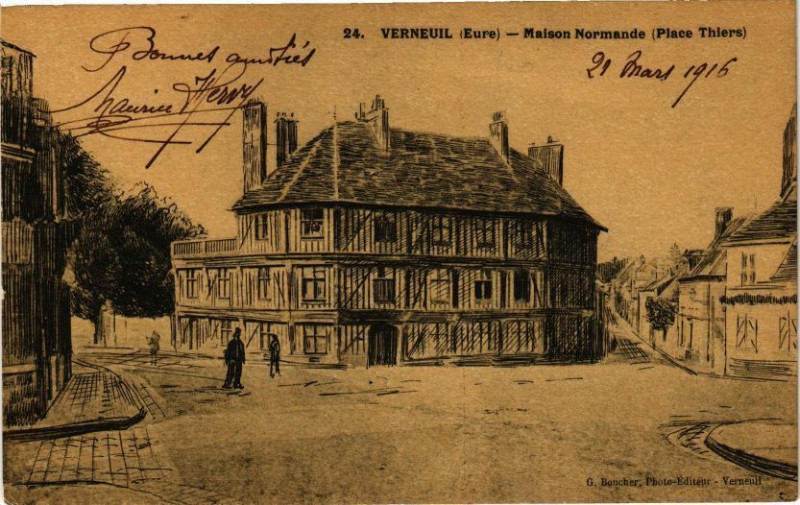 24. VERNEUIL (Eure) — Maison Normande (Place Thiers)
Bonnes amitiés
Maurice Hervy
21 Mars 1916
G. Boucher, Photo-Éditeur - Verneuil